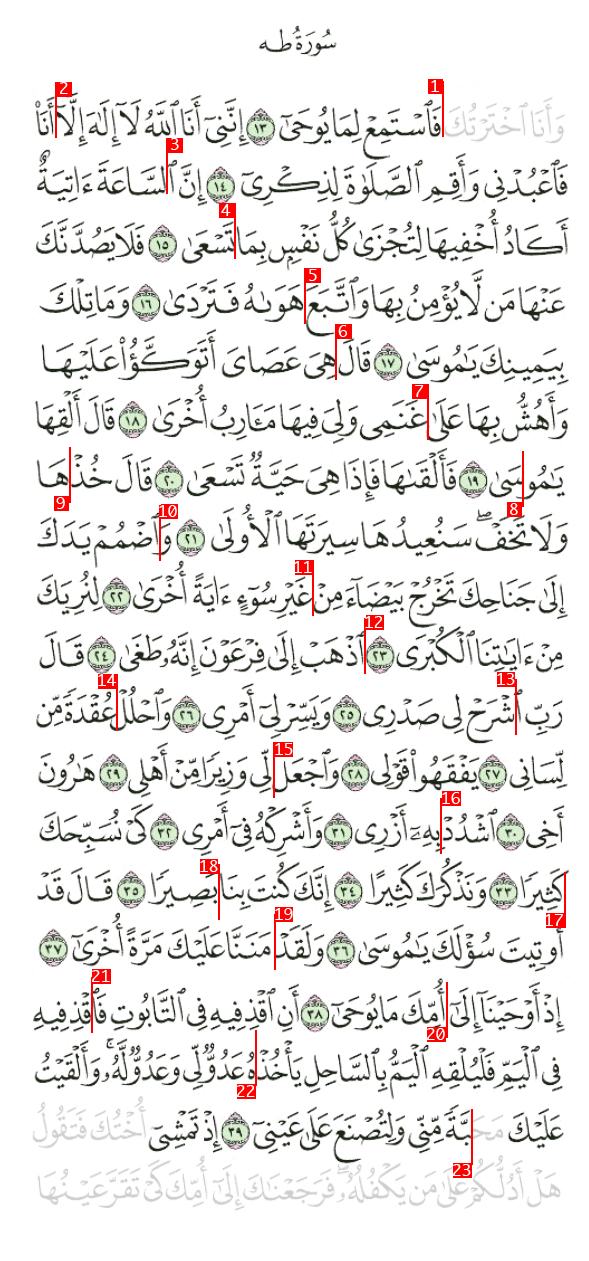 سُورَةُ طه
وَأَنَا ٱخْتَرْتُكَ فَٱسْتَمِعْ لِمَا يُوحَىٰٓ ١٣ إِنَّنِىٓ أَنَا ٱللَّهُ لَآ إِلَٰهَ إِلَّآ أَنَا۠
فَٱعْبُدْنِى وَأَقِمِ ٱلصَّلَوٰةَ لِذِكْرِىٓ ١٤ إِنَّ ٱلسَّاعَةَ ءَاتِيَةٌ
أَكَادُ أُخْفِيهَا لِتُجْزَىٰ كُلُّ نَفْسٍۭ بِمَا تَسْعَىٰ ١٥ فَلَا يَصُدَّنَّكَ
عَنْهَا مَن لَّا يُؤْمِنُ بِهَا وَٱتَّبَعَ هَوَىٰهُ فَتَرْدَىٰ ١٦ وَمَا تِلْكَ
بِيَمِينِكَ يَٰمُوسَىٰ ١٧ قَالَ هِىَ عَصَاىَ أَتَوَكَّؤُا۟ عَلَيْهَا
وَأَهُشُّ بِهَا عَلَىٰ غَنَمِى وَلِىَ فِيهَا مَـَٔارِبُ أُخْرَىٰ ١٨ قَالَ أَلْقِهَا
يَٰمُوسَىٰ ١٩ فَأَلْقَىٰهَا فَإِذَا هِىَ حَيَّةٌ تَسْعَىٰ ٢٠ قَالَ خُذْهَا
وَلَا تَخَفْ ۖ سَنُعِيدُهَا سِيرَتَهَا ٱلْأُولَىٰ ٢١ وَٱضْمُمْ يَدَكَ
إِلَىٰ جَنَاحِكَ تَخْرُجْ بَيْضَآءَ مِنْ غَيْرِ سُوٓءٍ ءَايَةً أُخْرَىٰ ٢٢ لِنُرِيَكَ
مِنْ ءَايَٰتِنَا ٱلْكُبْرَى ٢٣ ٱذْهَبْ إِلَىٰ فِرْعَوْنَ إِنَّهُۥ طَغَىٰ ٢٤ قَالَ
رَبِّ ٱشْرَحْ لِى صَدْرِى ٢٥ وَيَسِّرْ لِىٓ أَمْرِى ٢٦ وَٱحْلُلْ عُقْدَةً مِّن
لِّسَانِى ٢٧ يَفْقَهُوا۟ قَوْلِى ٢٨ وَٱجْعَل لِّى وَزِيرًا مِّنْ أَهْلِى ٢٩ هَٰرُونَ
أَخِى ٣٠ ٱشْدُدْ بِهِۦٓ أَزْرِى ٣١ وَأَشْرِكْهُ فِىٓ أَمْرِى ٣٢ كَىْ نُسَبِّحَكَ
كَثِيرًا ٣٣ وَنَذْكُرَكَ كَثِيرًا ٣٤ إِنَّكَ كُنتَ بِنَا بَصِيرًا ٣٥ قَالَ قَدْ
أُوتِيتَ سُؤْلَكَ يَٰمُوسَىٰ ٣٦ وَلَقَدْ مَنَنَّا عَلَيْكَ مَرَّةً أُخْرَىٰٓ ٣٧
إِذْ أَوْحَيْنَآ إِلَىٰٓ أُمِّكَ مَا يُوحَىٰٓ ٣٨ أَنِ ٱقْذِفِيهِ فِى ٱلتَّابُوتِ فَٱقْذِفِيهِ
فِى ٱلْيَمِّ فَلْيُلْقِهِ ٱلْيَمُّ بِٱلسَّاحِلِ يَأْخُذْهُ عَدُوٌّ لِّى وَعَدُوٌّ لَّهُۥ ۚ وَأَلْقَيْتُ
عَلَيْكَ مَحَبَّةً مِّنِّى وَلِتُصْنَعَ عَلَىٰ عَيْنِىٓ ٣٩ إِذْ تَمْشِىٓ أُخْتُكَ فَتَقُولُ
هَلْ أَدُلُّكُمْ عَلَىٰ مَن يَكْفُلُهُۥ ۖ فَرَجَعْنَٰكَ إِلَىٰٓ أُمِّكَ كَىْ تَقَرَّ عَيْنُهَا
1
2
3
4
5
6
7
8
9
10
11
12
13
14
15
16
17
18
19
20
21
22
23